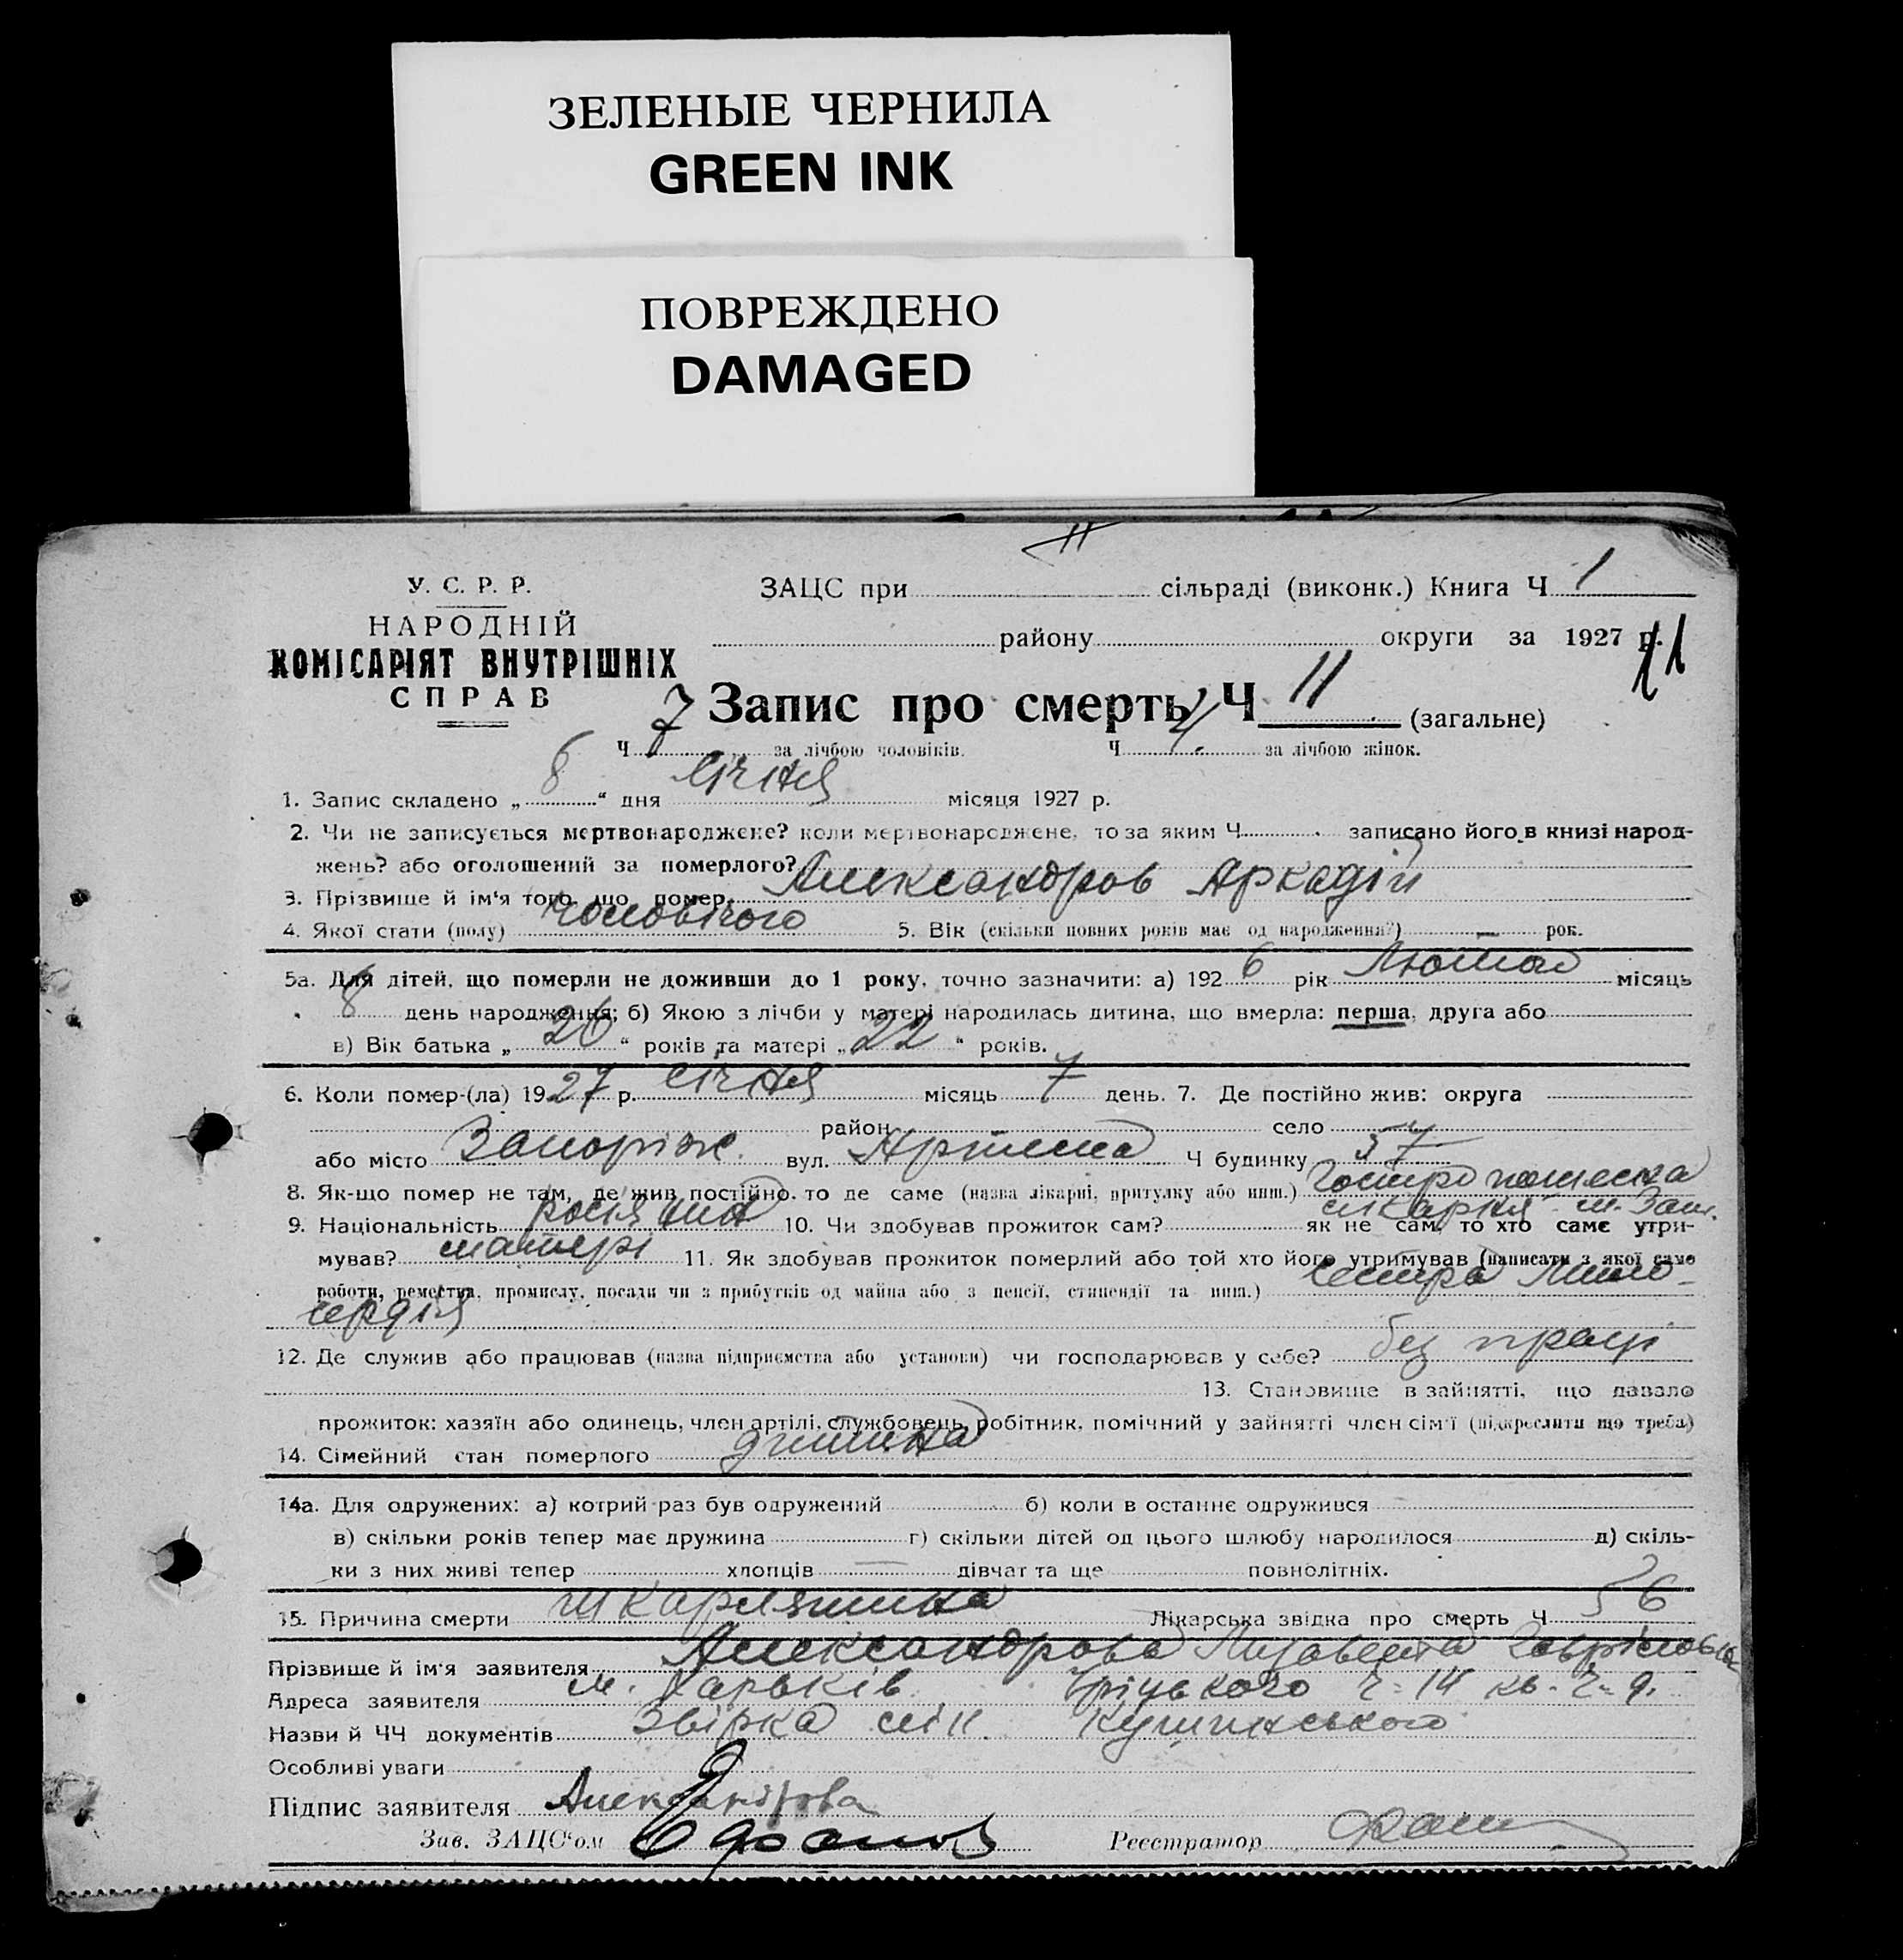 ЗЕЛЕНЫЕ ЧЕРНИЛА
GREEN INK
ПОВРЕЖДЕНО
DAMAGED
11
У. С. Р. Р.
НАРОДНІЙ
КОМІСАРІЯТ ВНУТРІШНІХ
СПРАВ
ЗАЦС при сільраді (виконк.) Книга Ч 1
району округи за 1927 р.
11
Запис про смерть Ч 11 (загальне)
Ч 7 за лічбою чоловіків. Ч 4 за лічбою жінок.
1. Запис складено „ 8 “ дня Січня місяця 1927 р.
2. Чи не записується мертвонароджене? коли мертвонароджене, то за яким Ч записано його в книзі народ-
жень? або оголошений за померлого?
3. Прізвище й ім‘я того, що помер. Александров Аркадій
4. Якої стати (полу) чоловічого 5. Вік (скільки повних років має од народження?) — рок.
5а. Для дітей, що померли не доживши до 1 року, точно зазначити: а) 1926 рік Лютого місяць
8 день народження; б) Якою з лічби у матері народилась дитина, що вмерла: перша, друга або
в) Вік батька „ 26 “ років та матері „ 22 “ років.
6. Коли помер-(ла) 1927 р. Січня місяць 7 день. 7. Де постійно жив: округа
район село
або місто Запоріж. вул. Артема Ч будинку 57
8. Як-що помер не там, де жив постійно, то де саме (назва лікарні, притулку або инш.) Гостро
лікарня м. Зап.
9. Національність росіянин 10. Чи здобував прожиток сам? як не сам, то хто саме утри-
мував? матері 11. Як здобував прожиток померлий або той хто його утримував (написати з якої саме
роботи, ремества, промислу, посади чи з прибутків од майна або з пенсії, стипендії та инш.) сестра Мило-
сердія
12. Де служив або працював (назва підприємства або установи) чи господарював у себе? без праці
13. Становище в зайнятті, що давало
прожиток: хазяїн або одинець, член артілі, службовець, робітник, помічний у зайнятті член сім‘ї (підкреслити що треба)
14. Сімейний стан померлого дитина
14а. Для одружених: а) котрий раз був одружений б) коли в останнє одружився
в) скільки років тепер має дружина г) скільки дітей од цього шлюбу народилося д) скіль-
ки з них живі тепер хлопців — дівчат та ще повнолітніх.
15. Причина смерти шкарлятина Лікарська звідка про смерть Ч 56
Прізвище й ім‘я заявителя Александрова Лизавета Гавріловна
Адреса заявителя м. Харьків Уріцького ч. 14 кв. ч. 9.
Назви й ЧЧ документів Звірка лік.
Особливі уваги
Підпис заявителя Александрова
Зав. ЗАЦС‘ом
Реєстратор